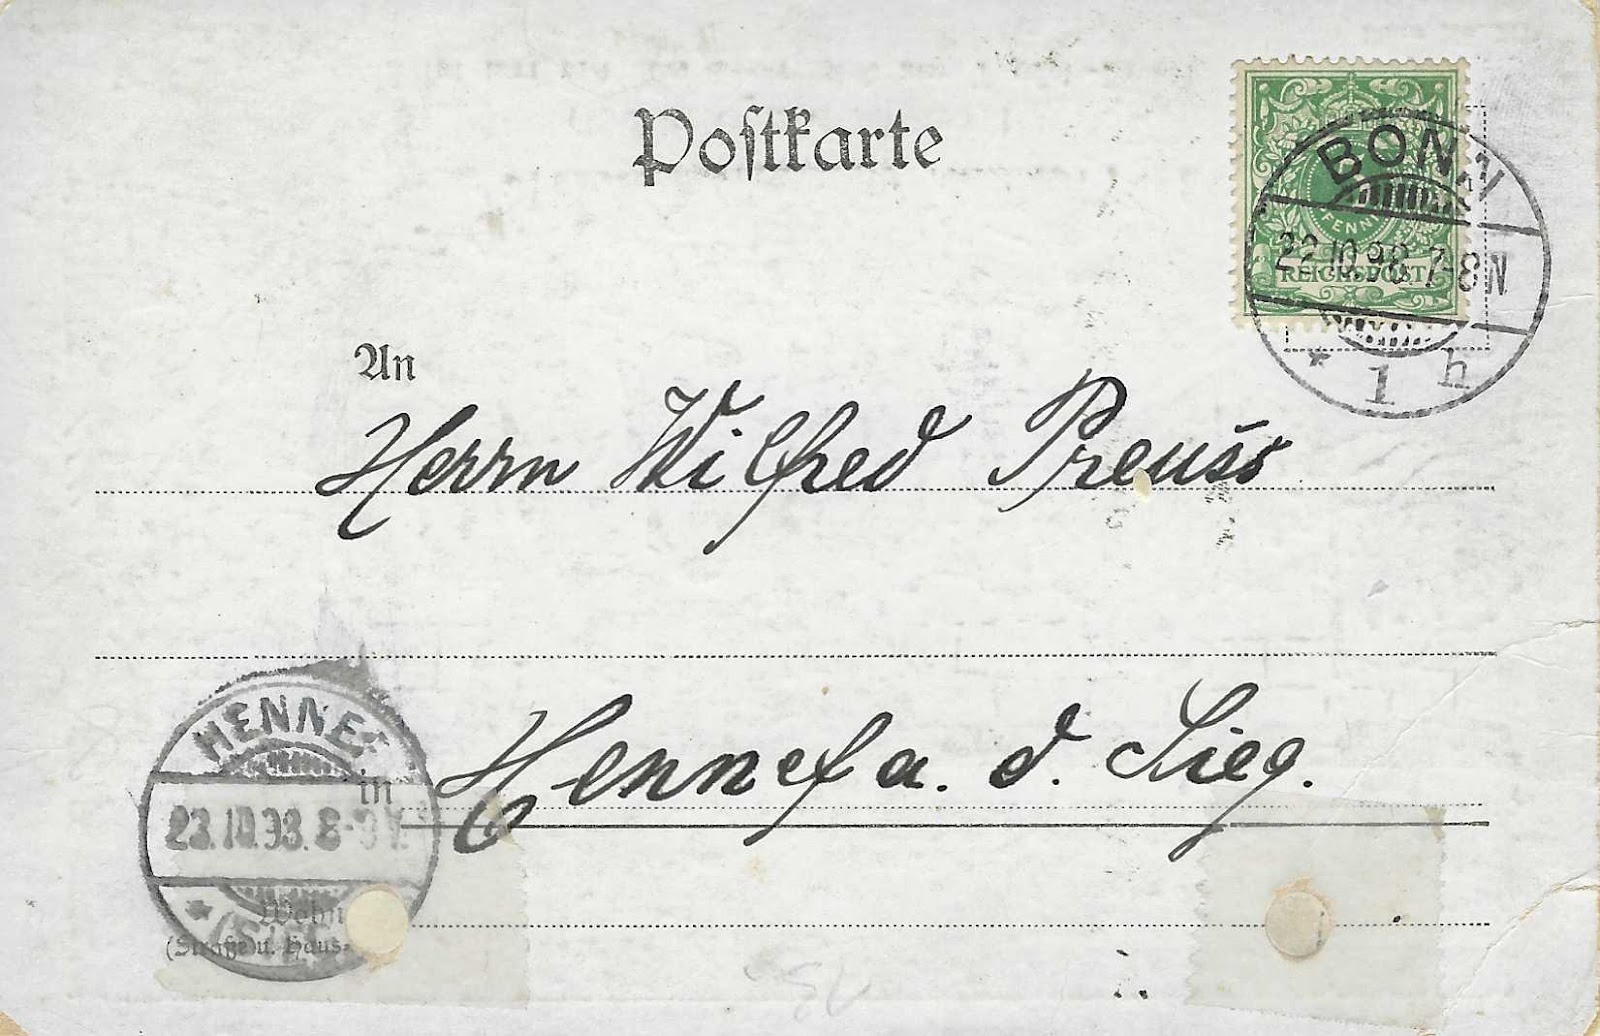 Postkarte
BONN
PFENNIG
22.10.98.7-8N
REICHSPOST
* 1 h
An
Herrn Wilfred Preuss
Hennef a. d. Sieg.
HENNEF
in
23.10.98.8-9V.
* (SIEG)
(Straße u. Haus-